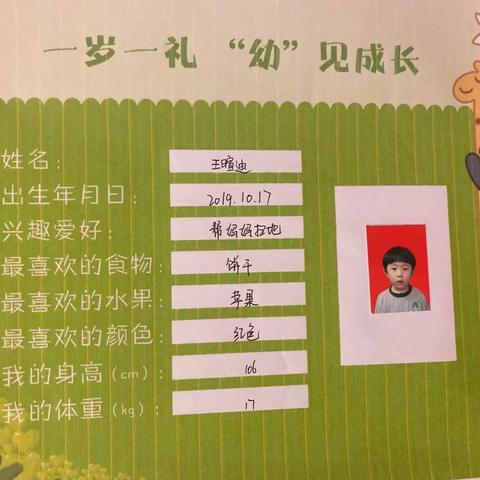 一岁一礼 “幼”见成长
姓名： 王暄迪
出生年月日： 2019.10.17
兴趣爱好： 帮妈妈扫地
最喜欢的食物： 饼干
最喜欢的水果： 苹果
最喜欢的颜色： 红色
我的身高（cm）： 106
我的体重（kg）： 17